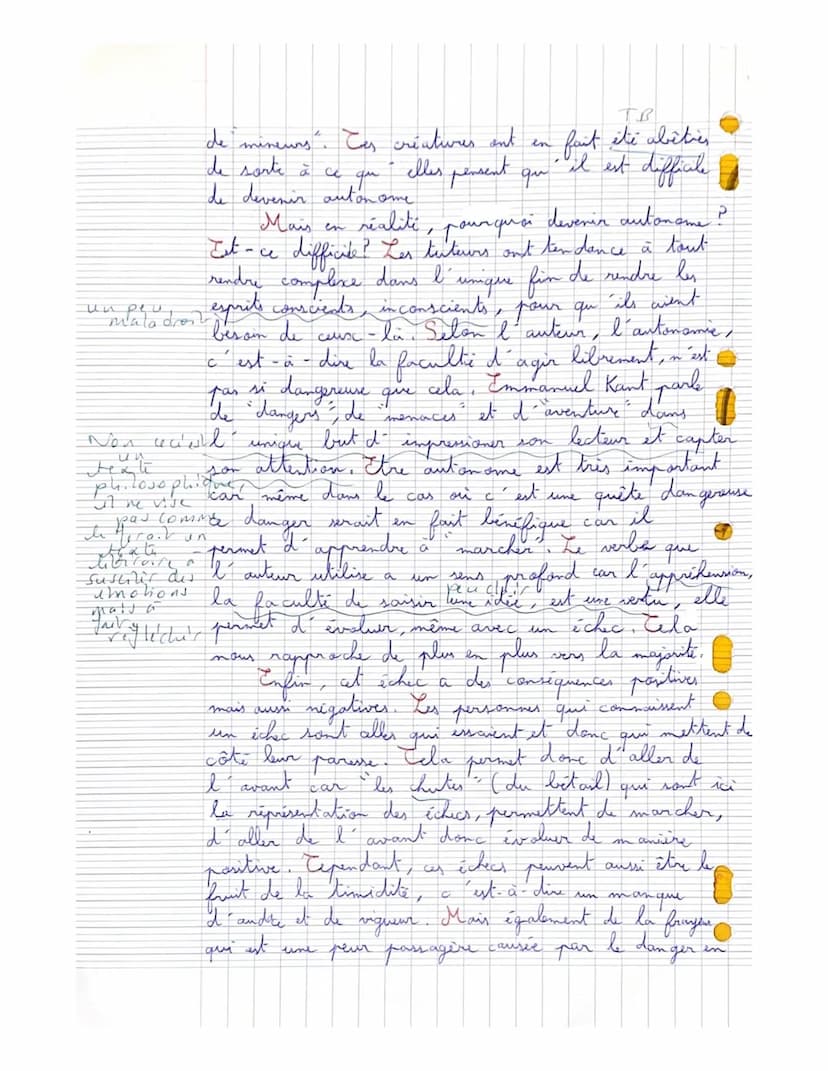 TB
de "mineurs". Ces créatures ont en fait été abêties
de sorte à ce qu'elles pensent qu'il est difficile
de devenir autonome
Mais en réalité, pourquoi devenir autonome ?
Est-ce difficile? Les tuteurs ont tendance à tout
rendre complexe dans l'unique fin de rendre les
un peu
maladroit
esprits conscients, inconscients, pour qu'ils aient
besoin de ceux-là. Selon l'auteur, l'autonomie,
c'est-à-dire la faculté d'agir librement, n'est
pas si dangereuse que cela. Emmanuel Kant parle
de "dangers", de "menaces" et d'"aventure" dans
l'unique but d'impressioner son lecteur et capter
son attention. Etre autonome est très important
car même dans le cas où c'est une quête dangereuse
ce danger serait en fait bénéfique car il
permet d'apprendre à "marcher". Le verbe que
l'auteur utilise a un sens profond car l'appréhension,
Non ceci est
un
texte
philosophique,
il ne vise
pas comme
le ferait un
texte
littéraire à
susciter des
émotions
mais à
faire
réfléchir
peu clair
la faculté de saisir une idée, est une vertu, elle
permet d'évoluer, même avec un échec. Cela
nous rapproche de plus en plus vers la majorité.
Enfin, cet échec a des conséquences positives
mais aussi négatives. Les personnes qui connaissent
un échec sont celles qui essaient et donc qui mettent de
côté leur paresse. Cela permet donc d'aller de
l'avant car "les chutes" (du bétail) qui sont ici
la réprésentation des échecs, permettent de marcher,
d'aller de l'avant donc évoluer de manière
positive. Cependant, ces échecs peuvent aussi être le
fruit de la timidité, c'est-à-dire un manque
d'audce et de vigueur. Mais également de la frayeur
qui est une peur passagère causée par le danger en